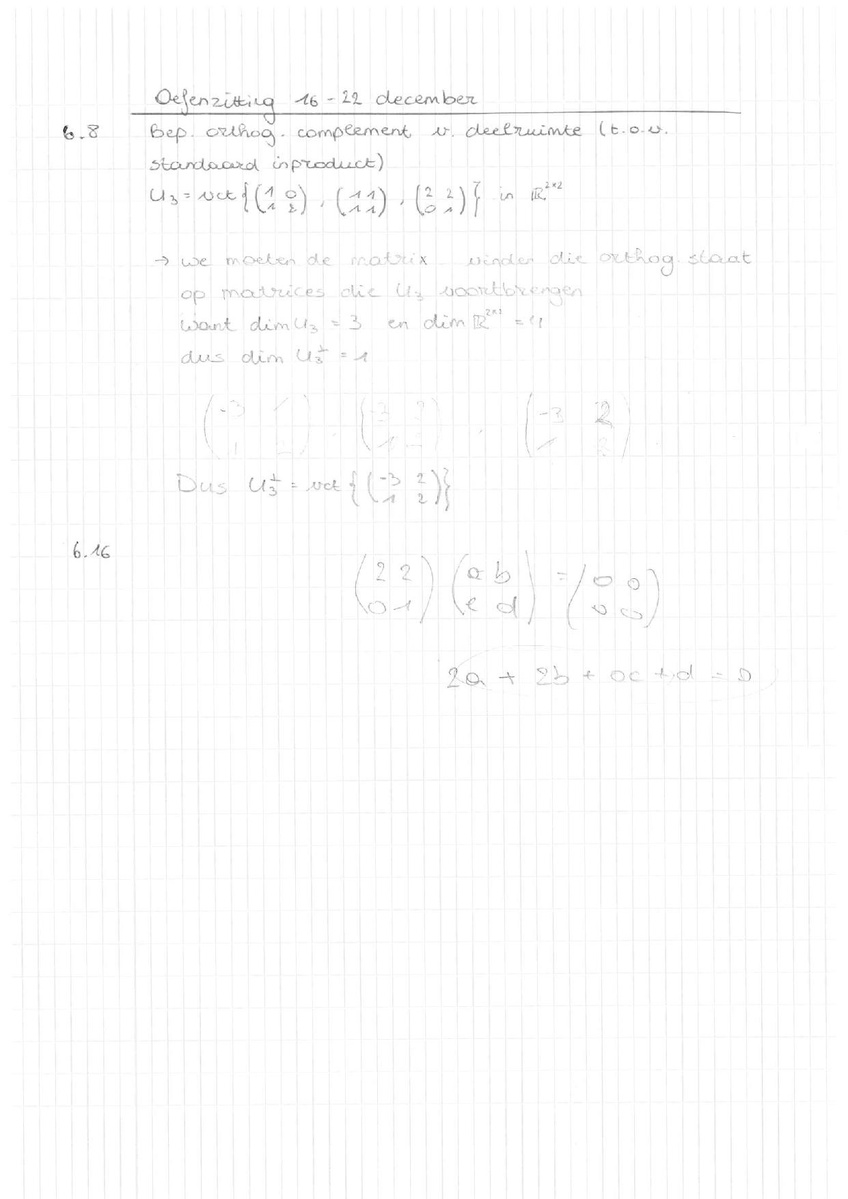 Oefenzitting 16-22 december
6.8 Bep. orthog. complement v. deelruimte (t.o.v.
standaard inproduct)
U₃ = vct {(1 0 / 1 2), (1 1 / 1 1), (2 2 / 0 1)} in ℝ²ˣ²
→ we moeten de matrix vinden die orthog. staat
op matrices die U₃ voortbrengen
want dim U₃ = 3 en dim ℝ²ˣ² = 4
dus dim U₃⊥ = 1
(-3 2 / 1 2)
Dus U₃⊥ = vct {(-3 2 / 1 2)}
6.16
(2 2 / 0 1) (a b / c d) = (0 0 / 0 0)
2a + 2b + 0c + d = 0